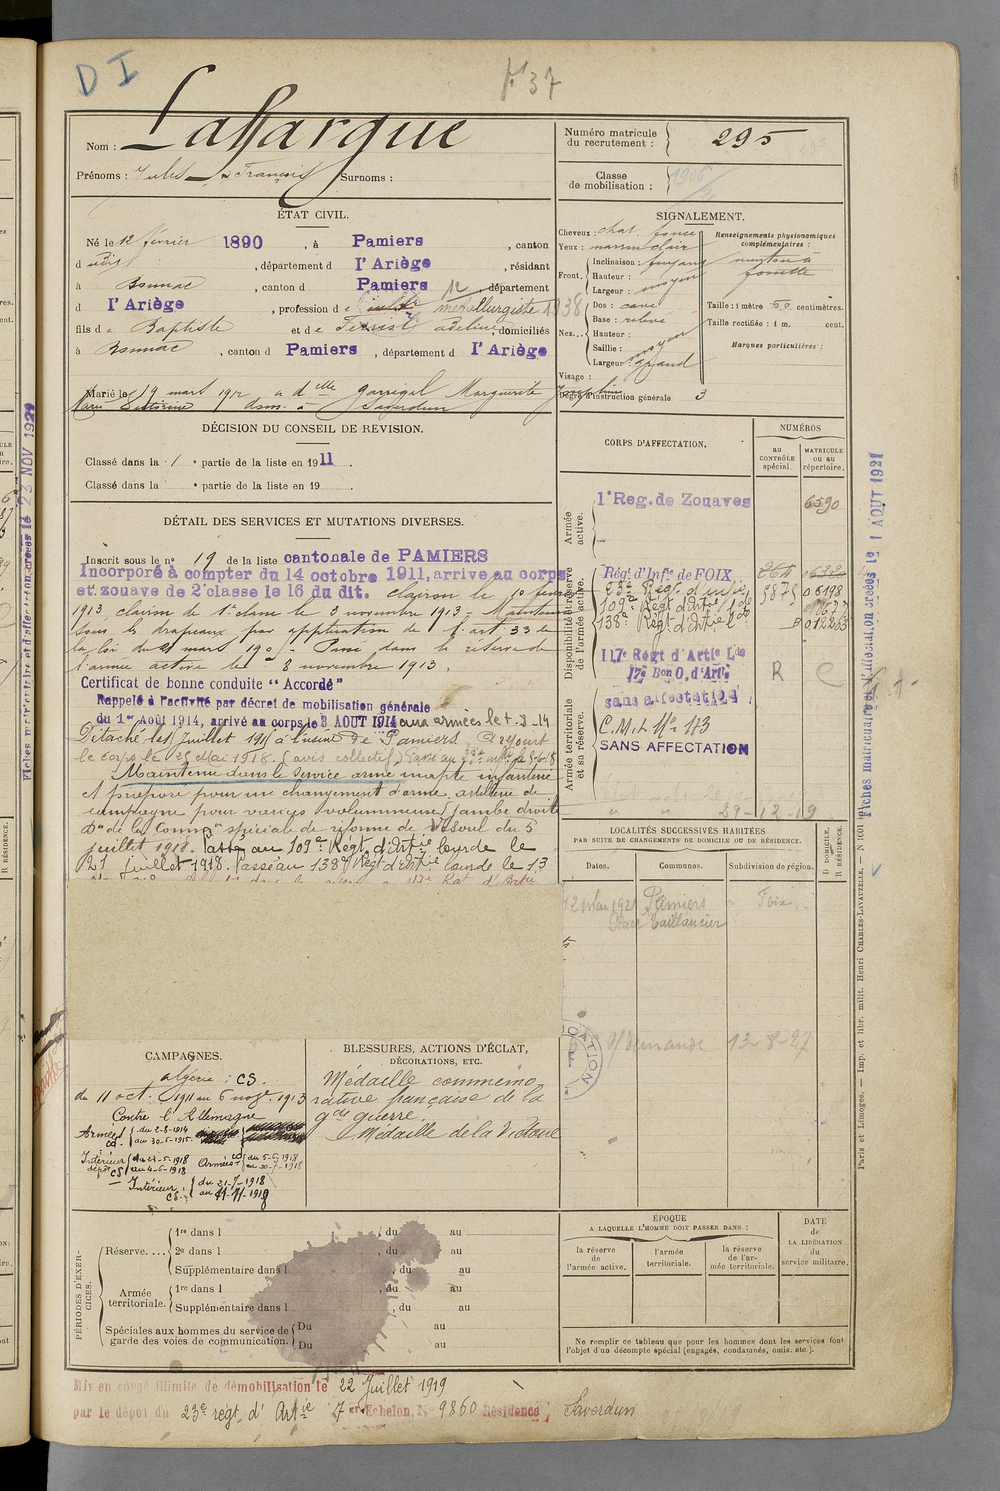 D I
F 37
Nom : Laffargue
Prénoms : Jules François Surnoms :
Numéro matricule du recrutement : 295
Classe de mobilisation : 1906
ÉTAT CIVIL.
Né le 12 février 1890, à Pamiers, canton
d udit, département d l'Ariège, résidant
à Bonnac, canton d Pamiers, département
d l'Ariège, profession de métallurgiste 1938
fils de Baptiste et de Adeline, domiciliés
à Bonnac, canton d Pamiers, département d l'Ariège
Marié le 19 mars 1912 à dlle Garrigal Marguerite Joséphine
Marie à Saverdun
SIGNALEMENT.
Cheveux : chat. foncé
Yeux : marron clair
Front. Inclinaison : fuyant
Hauteur : moyen
Largeur : moyen
Nez... Dos : cave
Base : relevé
Hauteur :
Saillie : moyen
Largeur : grand
Visage :
Renseignements physionomiques complémentaires :
menton à fossette
Taille : 1 mètre 60 centimètres.
Taille rectifiée : 1 m. cent.
Marques particulières :
Degré d'instruction générale 3
DÉCISION DU CONSEIL DE REVISION.
Classé dans la 1e partie de la liste en 1911
Classé dans la e partie de la liste en 19
DÉTAIL DES SERVICES ET MUTATIONS DIVERSES.
Inscrit sous le n° 19 de la liste cantonale de PAMIERS
Incorporé à compter du 14 octobre 1911, arrive au corps
et zouave de 2e classe le 16 du dit. Clairon le 10 février
1913, clairon de 1e classe le 3 novembre 1913 - Maintenu
sous les drapeaux par application de l'art. 33 de
la loi du 21 mars 1905 - Passé dans la réserve de
l'armée active le 8 novembre 1913.
Certificat de bonne conduite "Accordé"
Rappelé à l'activité par décret de mobilisation générale
du 1er Août 1914, arrivé au corps le 3 AOUT 1914 aux armées le
Détaché le 1 Juillet 1915 à l'usine de Pamiers. A rejoint
le corps le 25 Mai 1918. (avis collectif) Passé au 23e le 5-6-18
Maintenu dans le service armé inapte infanterie
et proposé pour un changement d'arme, artillerie de
campagne pour varices volumineuses jambe droite
Don de la Common spéciale de réforme de Vesoul du 5
juillet 1918. Passé au 109e Régt d'Artie lourde le
21 juillet 1918. Passé au 138e Régt d'Artie lourde le 13
CORPS D'AFFECTATION.
NUMÉROS
au CONTRÔLE spécial.
MATRICULE OU AU répertoire.
Armée active.
1e Reg. de Zouaves 6590
Disponibilité et réserve de l'armée active.
Régt d'Infie de FOIX
23e Régt d'infie 5875 06198
109e Régt d'Artie Lde
138e Régt d'Artie Lde
117e Régt d'Artie Lde
17e Bon O. d'Artie R C
Armée territoriale et sa réserve.
sans affectation
C.M.I. No 173
SANS AFFECTATION
29-12-19
LOCALITÉS SUCCESSIVES HABITÉES
PAR SUITE DE CHANGEMENTS DE DOMICILE OU DE RÉSIDENCE.
Dates. Communes. Subdivision de région. D DOMICILE. R RÉSIDENCE.
12 mai 1921 Pamiers Foix
Place Taillancier
13-8-27
CAMPAGNES.
Algérie : CS.
du 11 oct. 1911 au 6 nov. 1913
Contre l'Allemagne
Armées CD. du 2-8-1914 au 30-6-1915
Intérieur dépôt CS du 23-5-1918 au 4-6-1918
Armées CD du 5-6-1918 au 20-7-1918
Intérieur : CS. du 21-7-1918 au 11-11-1918
BLESSURES, ACTIONS D'ÉCLAT,
DÉCORATIONS, ETC.
Médaille commémo
rative française de la
gde guerre.
Médaille de la Victoire
PÉRIODES D'EXERCICES.
Réserve.... 1re dans l , du au
2e dans l , du au
Supplémentaire dans l , du au
Armée territoriale. 1re dans l , du au
Supplémentaire dans l , du au
Spéciales aux hommes du service de garde des voies de communication. Du au
Du au
ÉPOQUE
A LAQUELLE L'HOMME DOIT PASSER DANS :
la réserve de l'armée active.
l'armée territoriale.
la réserve de l'armée territoriale.
DATE de LA LIBÉRATION du service militaire.
Ne remplir ce tableau que pour les hommes dont les services font
l'objet d'un décompte spécial (engagés, condamnés, omis, etc.).
Mis en congé illimité de démobilisation le 22 Juillet 1919
par le dépôt du 23e régt d'Artie 7er Echelon, No 9860 Résidence : Saverdun
Fiches matriculaire et d'affectation créées le 1 AOUT 1921
Paris et Limoges. — Imp. et libr. milit. Henri CHARLES-LAVAUZELLE. — N 1001
Fiches matriculaire et d'affectation créées le 23 NOV 1921